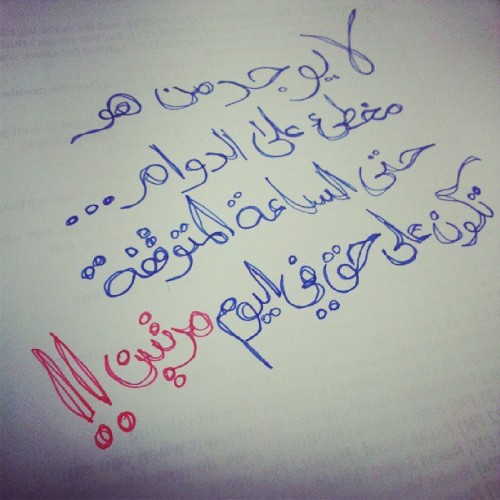 لا يوجد من هو
مخطئ على الدوام...
حتى الساعة المتوقفة
تكون على حق في اليوم مرتين!!